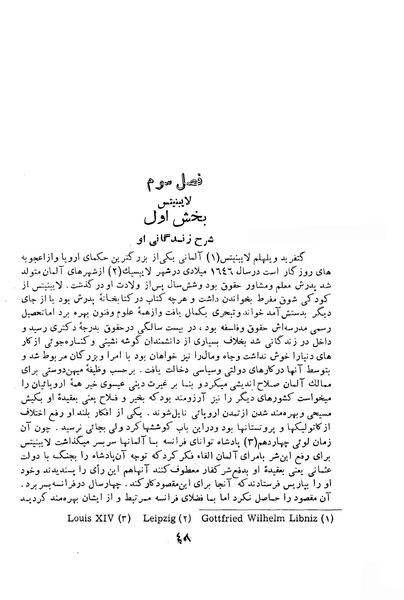 فصل سوم
لایبنیتس
بخش اول
شرح زندگانی او
گتفرید ویلهلم لایبنیتس(۱) آلمانی یکی از بزرگترین حکمای اروپا و از اعجوبه
های روزگار است در سال ۱۶۴۶ میلادی در شهر لایبسیک(۲) از شهرهای آلمان متولد
شد پدرش معلم و مشاور حقوق بود و شش سال پس از ولادت او در گذشت. لایبنیتس از
کودکی شوق مفرط بخواندن داشت و هرچه کتاب در کتابخانهٔ پدرش بود یا از جای
دیگر بدستش آمد خواند و تبحری بکمال یافت و از همهٔ علوم و فنون بهره برد اما تحصیل
رسمی مدرسه‌اش حقوق و فلسفه بود، در بیست سالگی در حقوق بدرجهٔ دکتری رسید و
داخل در زندگانی شد بخلاف بسیاری از دانشمندان گوشه نشینی و کناره‌جوئی از کار
های دنیا را خوش نداشت وجاه ومال را نیز خواهان بود با امرا و بزرگان مربوط شد و
بتوسط آنها در کارهای دولتی وسیاسی دخالت یافت. برحسب وظیفهٔ میهن‌دوستی برای
ممالک آلمان صلاح اندیشی میکرد و بنا بر غیرت دینی عیسوی خیر همهٔ اروپائیان را
میخواست کشورهای دیگر را نیز آرزومند بود که بخیر و فلاح یعنی بعقیدهٔ او بکیش
مسیحی وبهره‌مند شدن از تمدن اروپائی نایل شوند. یکی از افکار بلند او رفع اختلاف
از کاتولیکها و پروتستانها بود و در این باب کوششها کرد ولی بجائی نرسید. چون آن
زمان لوئی چهاردهم(۳) پادشاه توانای فرانسه با آلمانها سربسر میگذاشت لایبنیتس
برای رفع این شر بامرای آلمان القاء فکر کرد که توجه آن پادشاه را بجنگ با دولت
عثمانی یعنی بعقیدهٔ او بدفع شر کفار معطوف کنند آنها هم این رأی را پسندیدند وخود
او را بپاریس فرستادند که آنجا برای این مقصود کار کند. چهار سال در فرانسه بسر برد.
آن مقصود را حاصل نکرد اما بسا فضلای فرانسه مرتبط و از ایشان بهره‌مند گردید
(۱) Gottfried Wilhelm Libniz (۲) Leipzig (۳) Louis XIV
۴۸